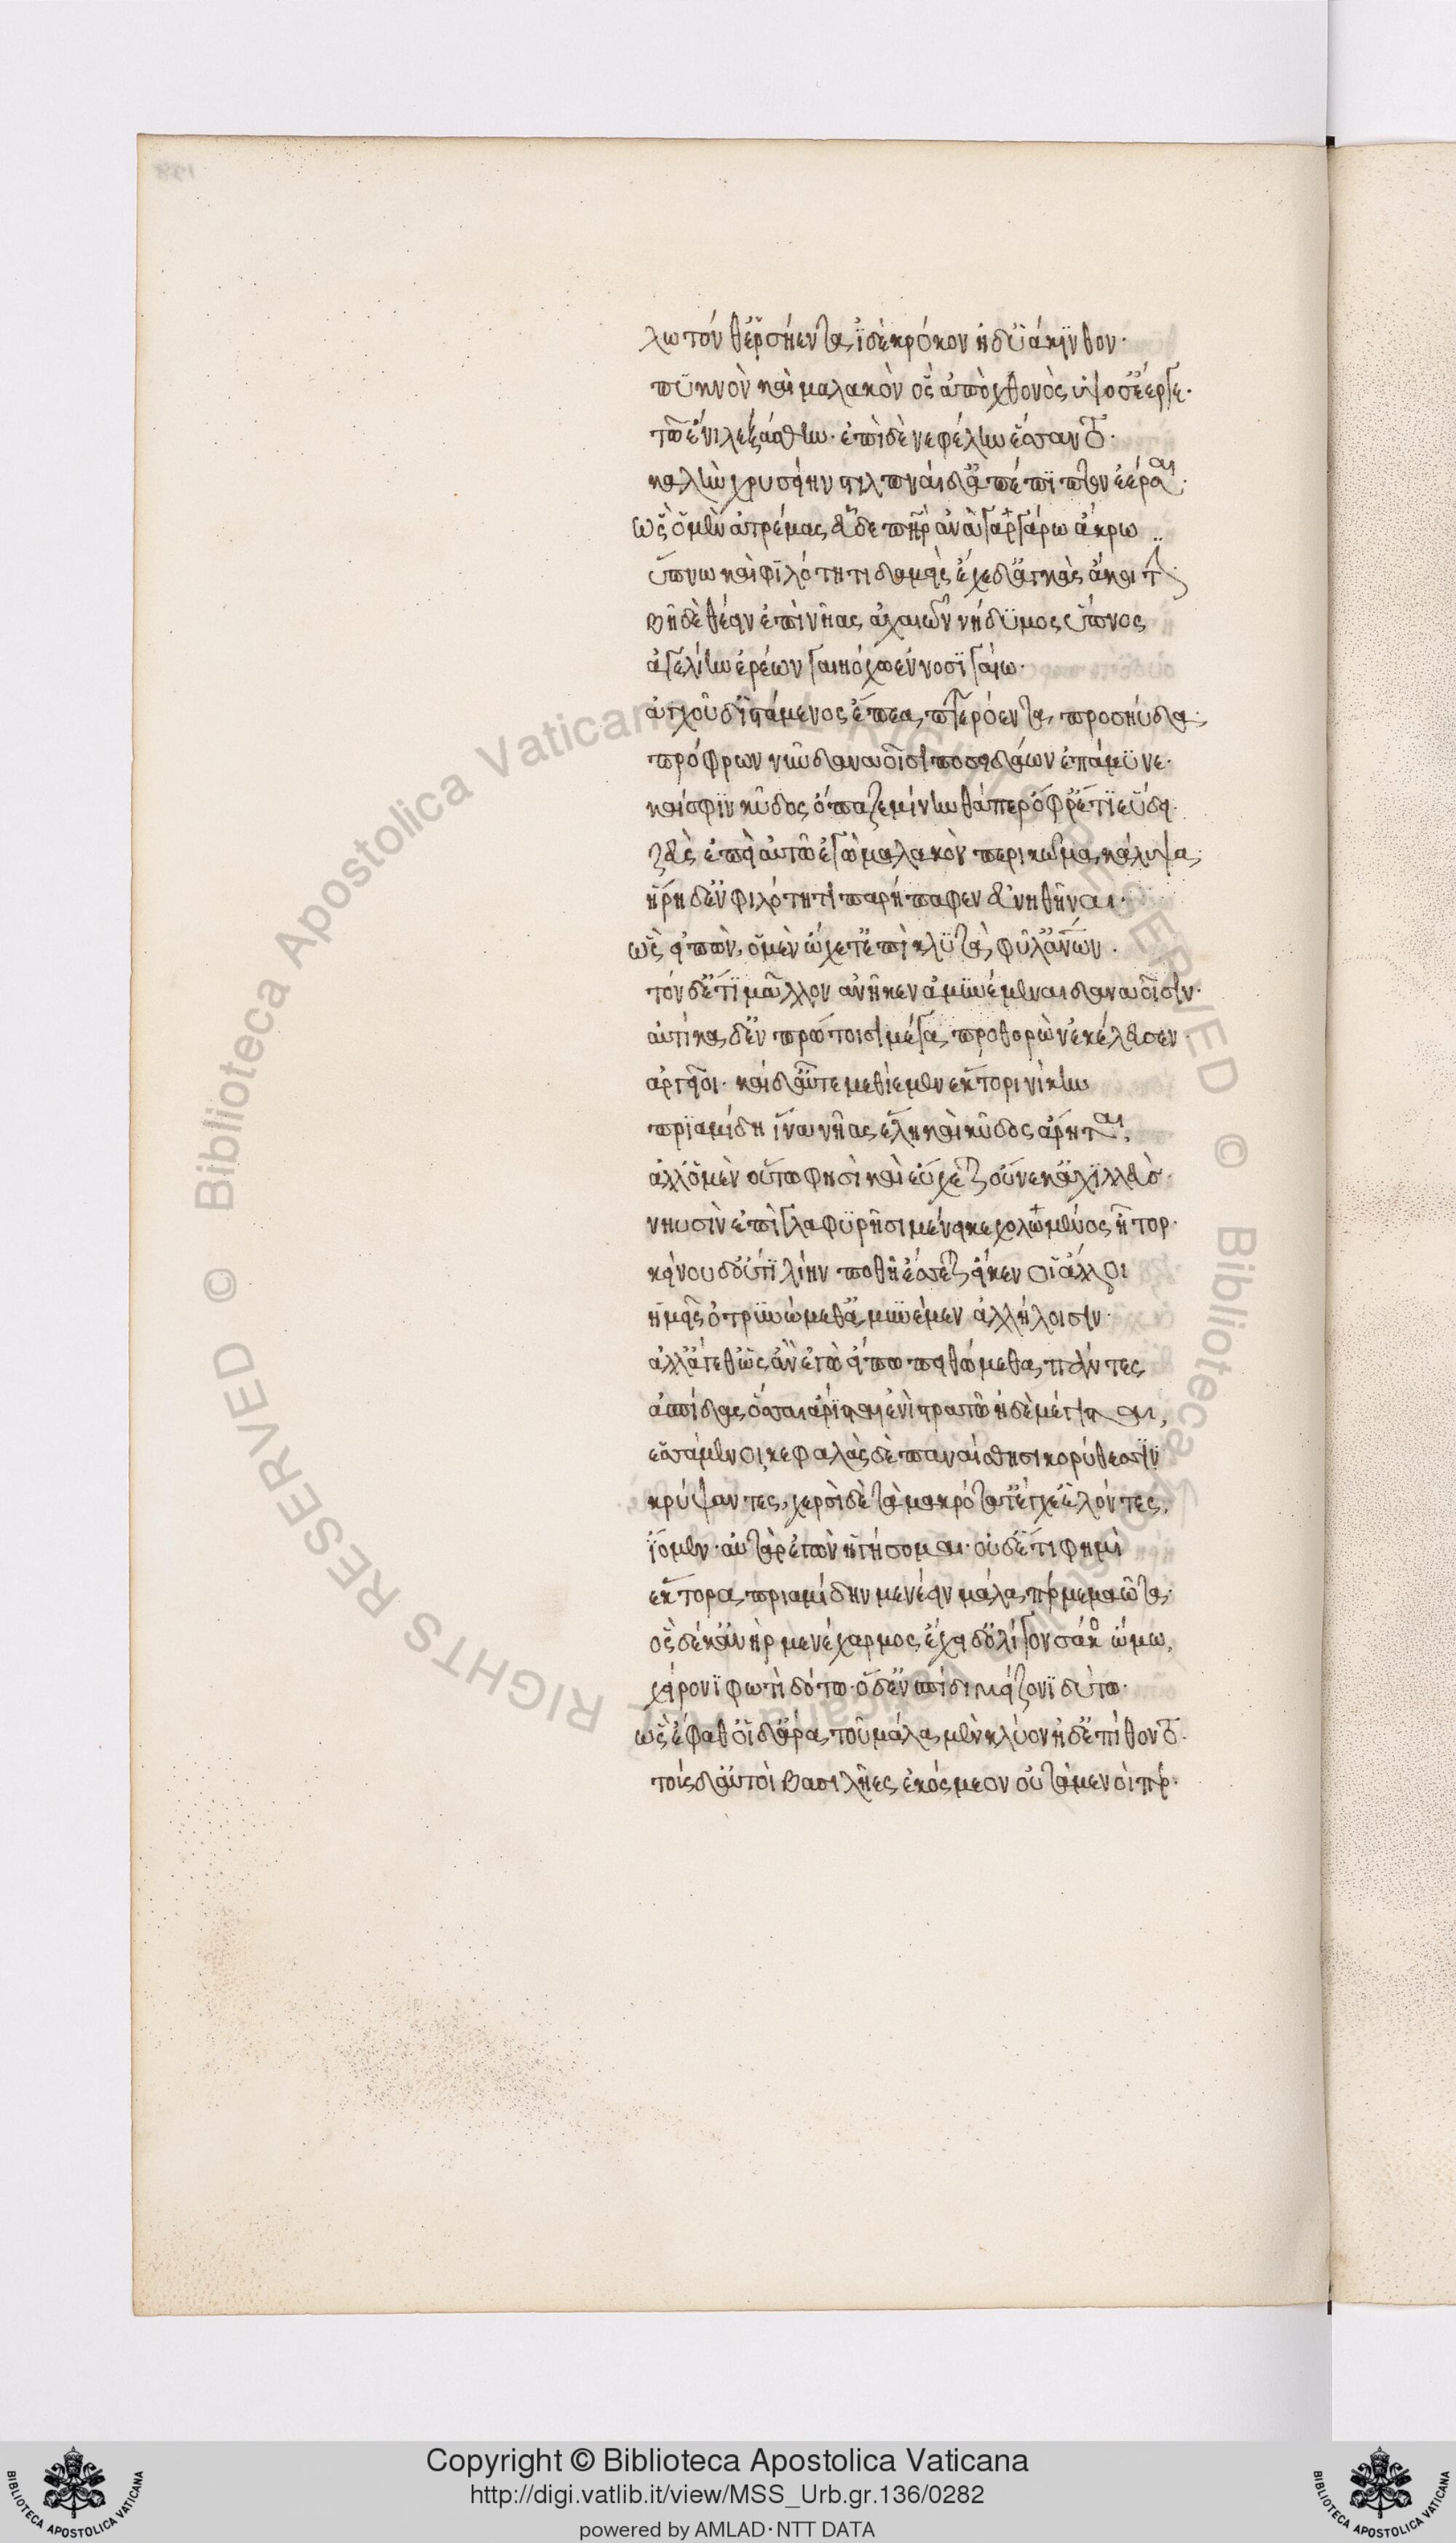 λωτόν θ' ἑρσήεντα ἰδὲ κρόκον ἠδ' ὑάκινθον·
πυκνὸν καὶ μαλακὸν ὃς ἀπὸ χθονὸς ὑψόσ' ἔεργε·
τῶ ἔνι λεξάσθην· ἐπὶ δὲ νεφέλην ἕσαντο·
καλὴν χρυσείην στιλπναὶ δ' ἀπέπιπτον ἔερσαι·
ὣς ὁ μὲν ἀτρέμας εὗδε πατὴρ ἀνὰ γαργάρω ἄκρω
ὕπνω καὶ φιλότητι δαμεὶς ἔχε δ' ἀγκὰς ἄκοιτιν
βῆ δὲ θέειν ἐπὶ νῆας ἀχαιῶν νήδυμος ὕπνος
ἀγγελίην ἐρέων γαιηόχω ἐννοσιγαίω·
ἀγχοῦ δ' ἱστάμενος ἔπεα πτερόεντα προσηύδα·
πρόφρων νῦν δαναοῖσι ποσειδάων ἐπάμυνε·
καί σφιν κῦδος ὄπαζε μίνυνθά περ ὄφρ' ἔτι εὕδει·
ζεὺς ἐπεὶ αὐτῶ ἐγὼ μαλακὸν περὶ κῶμα κάλυψα·
ἥρη δ' ἐν φιλότητι παρήπαφεν εὐνηθῆναι·
ὣς εἰπὼν, ὁ μὲν ᾤχετ' ἐπὶ κλυτὰ φῦλ' ἀνθρώπων·
τὸν δ' ἔτι μᾶλλον ἀνῆκεν ἀμυνέμεναι δαναοῖσιν·
αὐτίκα δ' ἐν πρώτοισι μέγα προθορὼν ἐκέλευσεν·
ἀργεῖοι· καὶ δ' αὖτε μεθίεμεν ἕκτορι νίκην
πριαμίδη ἵνα νῆας ἕλη καὶ κῦδος ἄρηται·
ἀλλ' ὁ μὲν οὕτω φησὶ καὶ εὔχεται οὕνεκ' ἀχιλλεὺς
νηυσὶν ἐπὶ γλαφυρῆσι μένει κεχολωμένος ἦτορ·
κείνου δ' οὔτι λίην ποθὴ ἔσσεται εἴ κεν οἱ ἄλλοι
ἡμεῖς ὀτρυνώμεθ' ἀμυνέμεν ἀλλήλοισιν·
ἀλλ' ἄγεθ' ὡς ἂν ἐγὼ εἴπω πειθώμεθα πάντες
ἀσπίδας ὅσσαι ἄρισται ἐνὶ στρατῶ ἠδὲ μέγισται,
ἑσσάμενοι κεφαλὰς δὲ παναίθησι κορύθεσσιν
κρύψαντες, χερσὶ δὲ τὰ μακρότατ' ἔγχε' ἑλόντες,
ἴομεν· αὐτὰρ ἐγὼν ἡγήσομαι· οὐδ' ἔτι φημὶ
ἕκτορα πριαμίδην μενέειν μάλα περ μεμαῶτα·
ὃς δέ κ' ἀνὴρ μενέχαρμος ἔχει δ' ὀλίγον σάκος ὤμω,
χείρονι φωτὶ δότω· ὁ δ' ἐν ἀσπίδι μείζονι δύτω·
ὣς ἔφαθ' οἱ δ' ἄρα τοῦ μάλα μὲν κλύον ἠδ' ἐπίθοντο·
τοὺς δ' αὐτοὶ βασιλῆες ἐκόσμεον οὐτάμενοί περ·